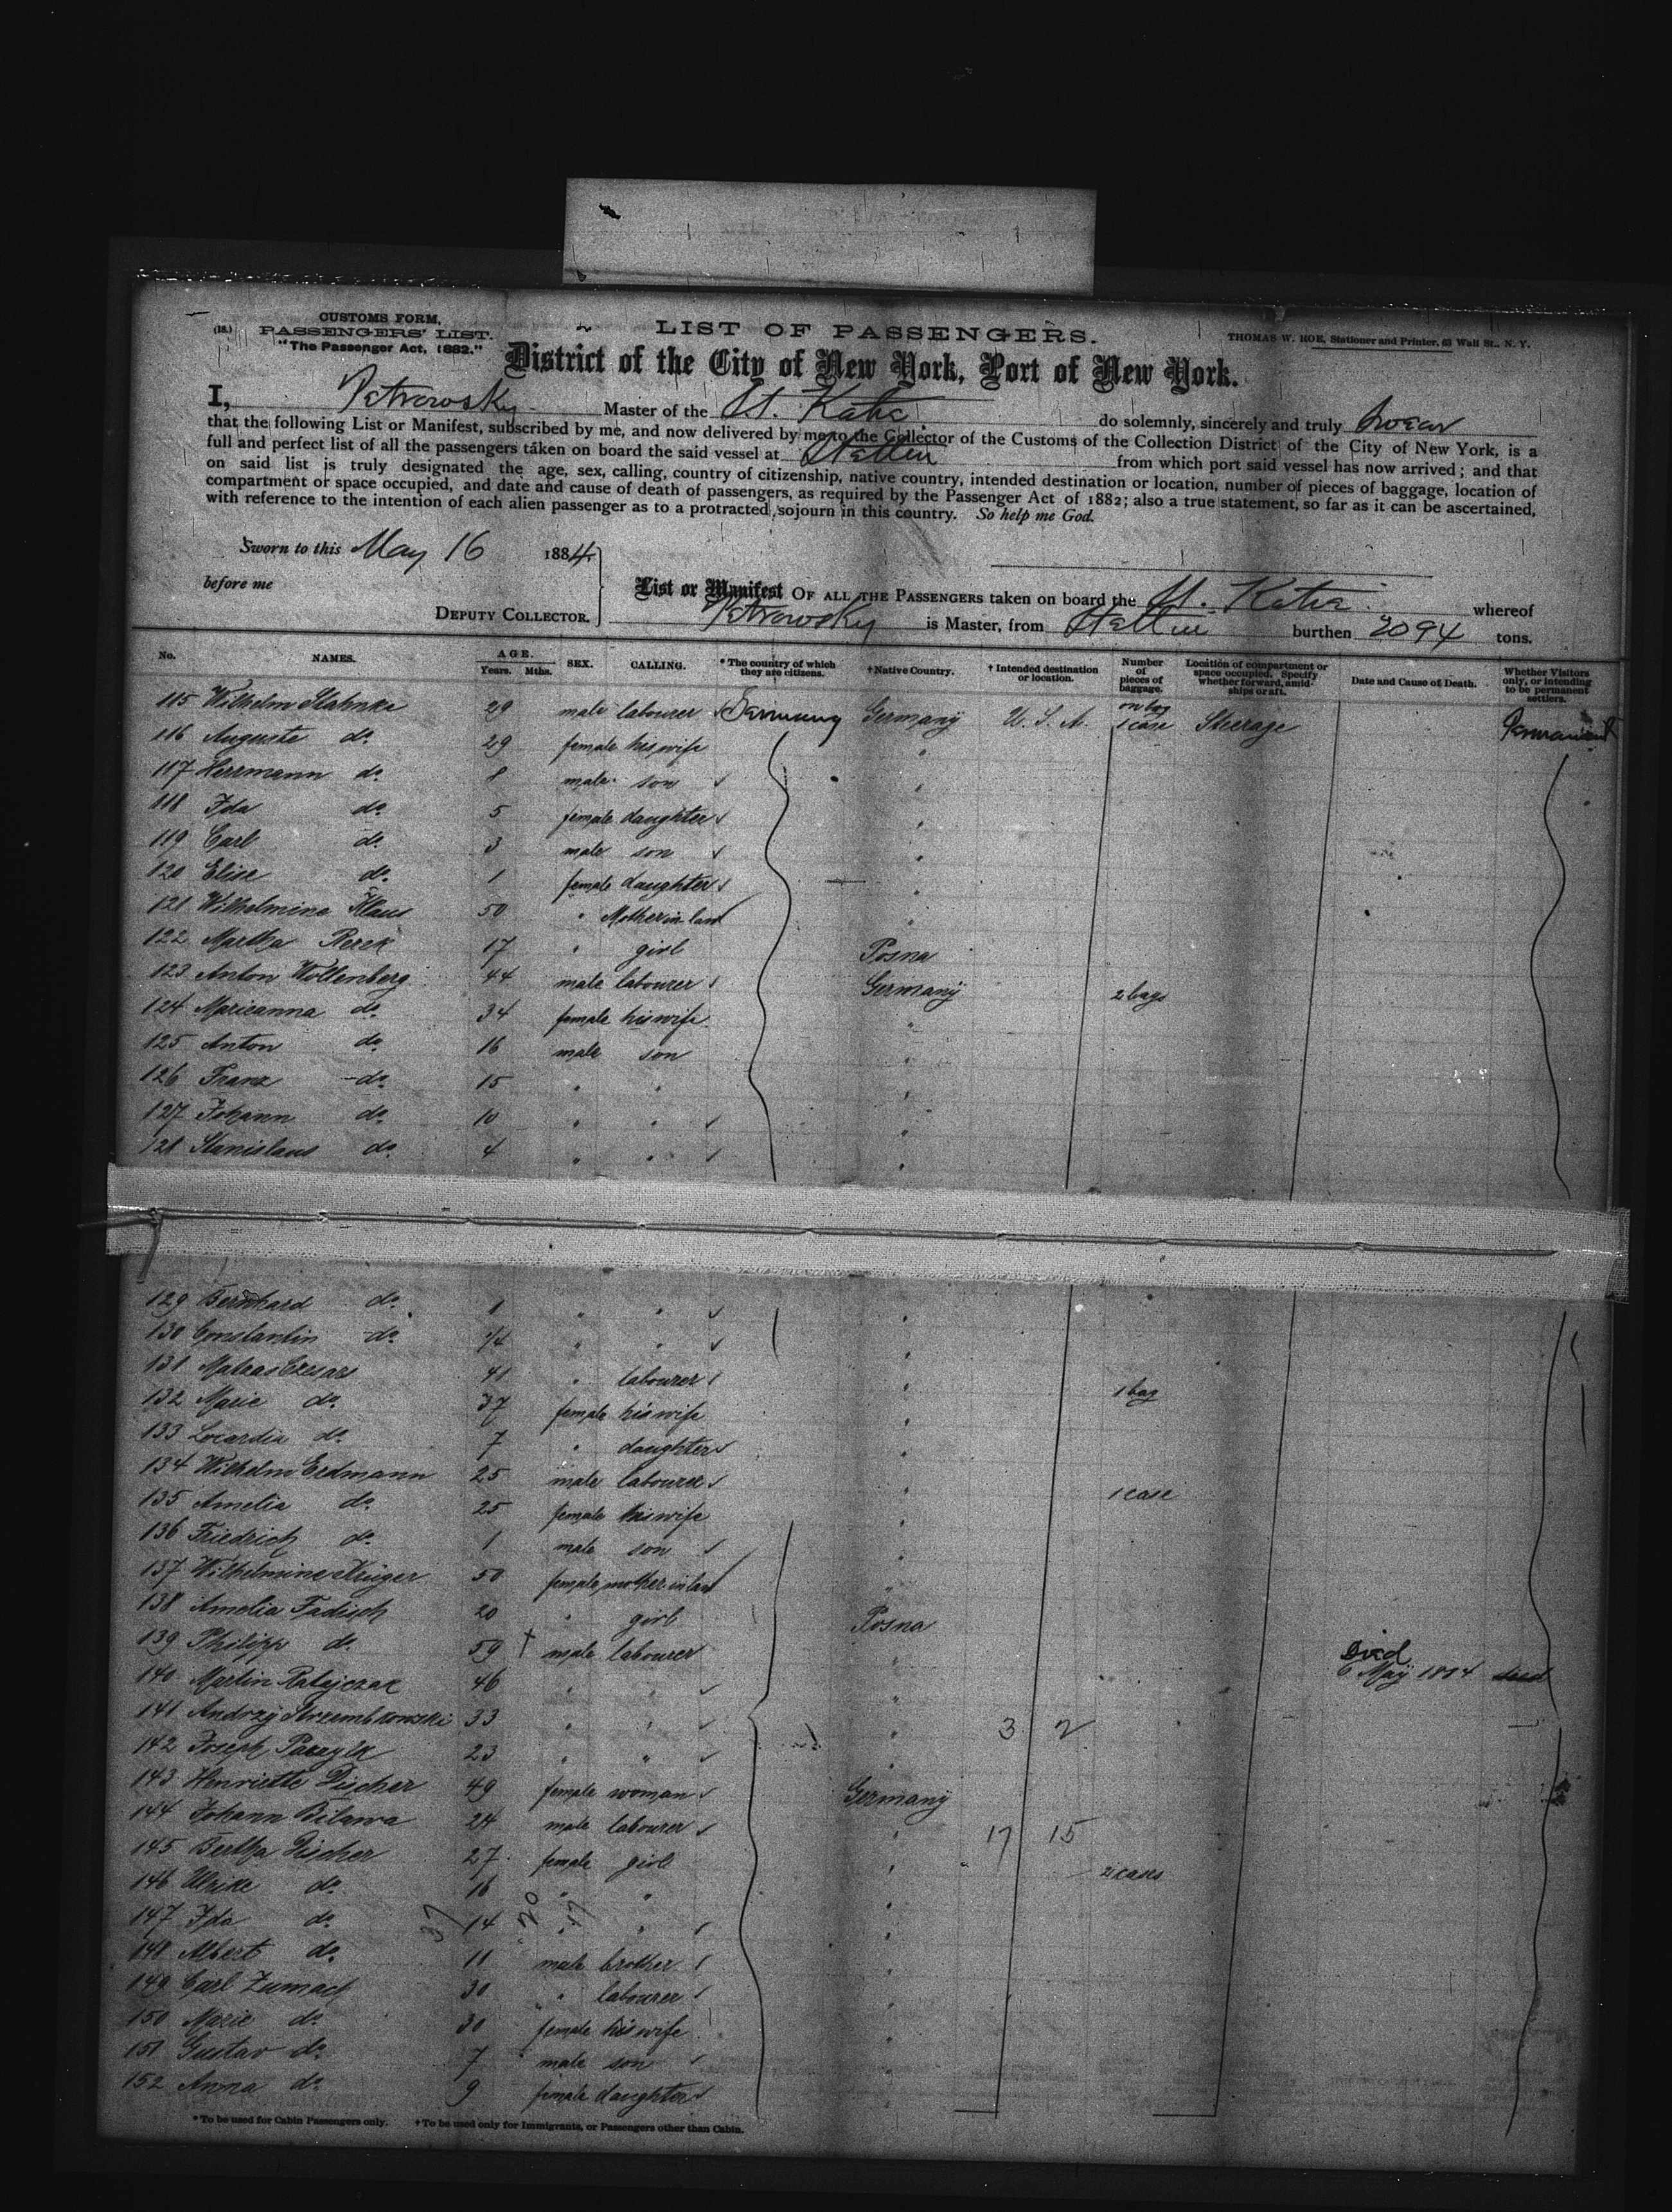 CUSTOMS FORM,
(18.) PASSENGERS' LIST.
"The Passenger Act, 1882."
LIST OF PASSENGERS.
THOMAS W. HOE, Stationer and Printer, 63 Wall St., N. Y.
District of the City of New York, Port of New York.
I, Petrowsky Master of the St. Katie do solemnly, sincerely and truly swear
that the following List or Manifest, subscribed by me, and now delivered by me to the Collector of the Customs of the Collection District of the City of New York, is a
full and perfect list of all the passengers taken on board the said vessel at Stettin from which port said vessel has now arrived; and that
on said list is truly designated the age, sex, calling, country of citizenship, native country, intended destination or location, number of pieces of baggage, location of
compartment or space occupied, and date and cause of death of passengers, as required by the Passenger Act of 1882; also a true statement, so far as it can be ascertained,
with reference to the intention of each alien passenger as to a protracted sojourn in this country. So help me God.
Sworn to this May 16 1884
before me
DEPUTY COLLECTOR.
List or Manifest OF ALL THE PASSENGERS taken on board the St. Katie whereof
Petrowsky is Master, from Stettin burthen 2094 tons.
No. NAMES. AGE. Years. Mths. SEX. CALLING. * The country of which they are citizens. † Native Country. † Intended destination or location. Number of pieces of baggage. Location of compartment or space occupied. Specify whether forward, amidships or aft. Date and Cause of Death. Whether Visitors only, or intending to be permanent settlers.
115 Wilhelm Stahnke 29 male labourer Germany Germany U. S. A. 1 case Steerage Permanent
116 Auguste do. 29 female his wife "
117 Herrmann do. 8 male son "
118 Ida do. 5 female daughter "
119 Carl do. 3 male son "
120 Elise do. 1 female daughter "
121 Wilhelmina Klaus 50 " Mother in law "
122 Martha Rezek 17 " girl Posna
123 Anton Wollenberg 44 male labourer Germany 2 bags
124 Marieanna do. 34 female his wife "
125 Anton do. 16 male son "
126 Franz do. 15 " " "
127 Johann do. 10 " " "
128 Stanislaus do. 4 " " "
129 Bernhard do. 1 " " "
130 Constantin do. " " "
131 Mateas Czesars 41 " labourer " 1 bag
132 Marie do. 37 female his wife "
133 Locardia do. 7 " daughter "
134 Wilhelm Erdmann 25 male labourer " 1 case
135 Amelia do. 25 female his wife "
136 Friedrich do. 1 male son "
137 Wilhelmine Krüger 50 female mother in law "
138 Amelia Tadisch 20 " girl Posna
139 Philipp do. 59 † male labourer " Died 6 May 1884
140 Martin Ratajczak 46 " " "
141 Andrzy Strzembkowski 33 " " " 3 2
142 Joseph 23 " " "
143 Henriette Discher 49 female woman Germany
144 Johann Bilawa 24 male labourer " 17 15
145 Bertha Discher 27 female girl " 2 cases
146 Ulrike do. 16 " " "
147 Ida do. 14 " " "
148 Albert do. 11 male brother "
149 Carl Zumach 30 " labourer "
150 Marie do. 30 female his wife "
151 Gustav do. 7 male son "
152 Anna do. 9 female daughter "
* To be used for Cabin Passengers only. † To be used only for Immigrants, or Passengers other than Cabin.